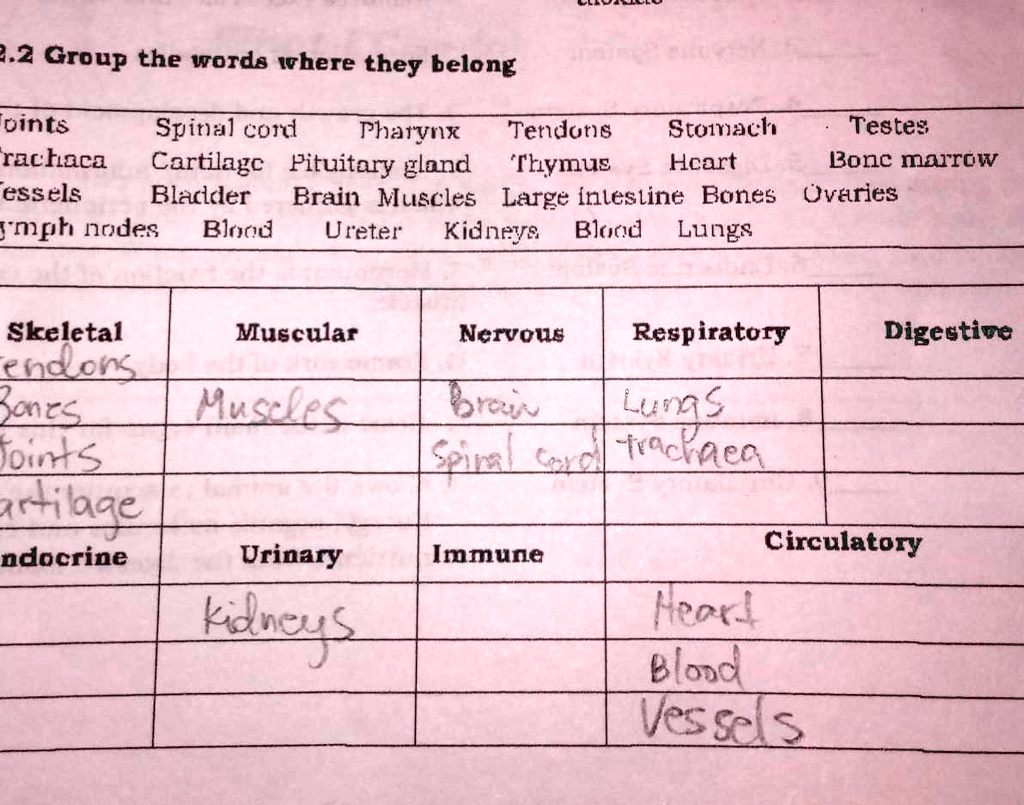 2.2 Group the words where they belong
oints Spinal cord Pharynx Tendons Stomach Testes
rachaea Cartilage Pituitary gland Thymus Heart Bone marrow
essels Bladder Brain Muscles Large intestine Bones Ovaries
ymph nodes Blood Ureter Kidneys Blood Lungs
Skeletal Muscular Nervous Respiratory Digestive
endons
Bones Muscles Brain Lungs
Joints Spinal cord trachaea
artilage
ndocrine Urinary Immune Circulatory
Kidneys Heart
Blood
Vessels